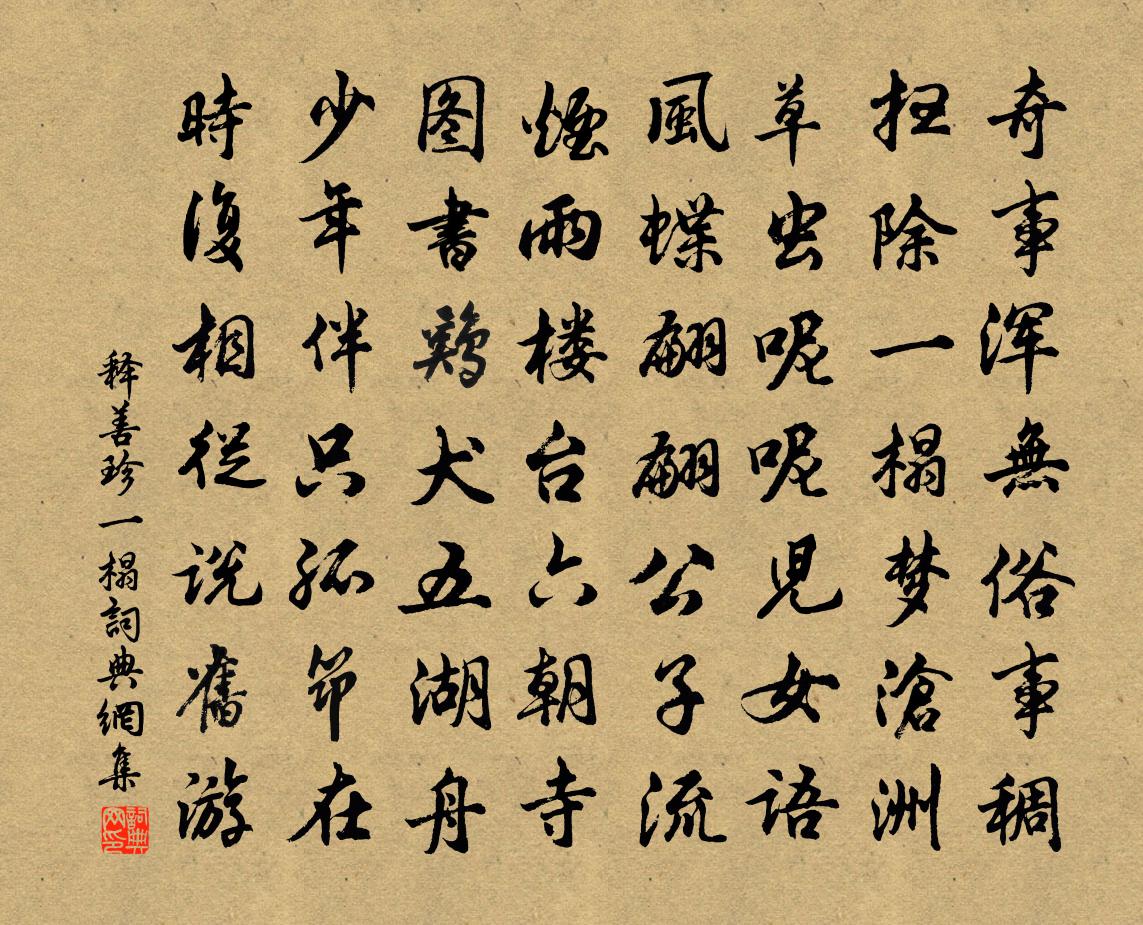 奇事浑無俗事稠
扫除一榻梦滄洲
草虫呢呢児女語
風蝶翩翩公子流
煙雨楼台六朝寺
图書鷄犬五湖舟
少年伴只孤筇在
時復相從说舊游
释善珍一榻詞典網集
詞典网印